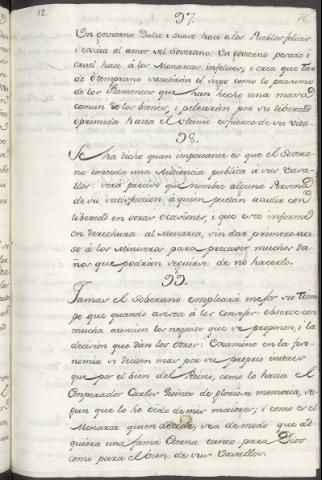 12.
97.
Un govierno Dulce i suave hace a los Pueblos felices
i excita al amor del Soberano. Un govierno pesado i
cruel hace a los Monarcas infelices, i crea que tar
de ó temprano sacudirán el iugo como lo
de los Flamencos que han hecho una
comun de los bienes, i pelearán por su libertad
oprimida hasta el ultimo esfuerzo de su vida.
98.
Se ha dicho quan importante es que el Sovera
no conceda una Audiencia publica a sus Vasa
llos: será preciso que nombre alguna Persona
de su satisfaccion á quien puedan acudir con
libertad en otras ocasiones, i que este informe
en derechura al Monarca, sin dar primero avi
so á los Ministros para precaver muchos da
ños que podrán seguirse de no hacerlo.
99.
Jamas el Soberano empleará mejor su Tiem
po que quando asista á los Consejos: observe con
mucha atencion los negocios que se proponen, i la
decision que dán los otros: Examine en la fiso
nomia si deciden mas por su proprio interes
que por el bien del Reino, como lo hacia el
Emperador Carlos Quinto de gloriosa memoria, se
gun que lo he oido de mis maiores; i como es el
Monarca quien decide, vea de modo que ad
quiera una fama Eterna tanto para Dios
como para el bien de sus Vasallos.